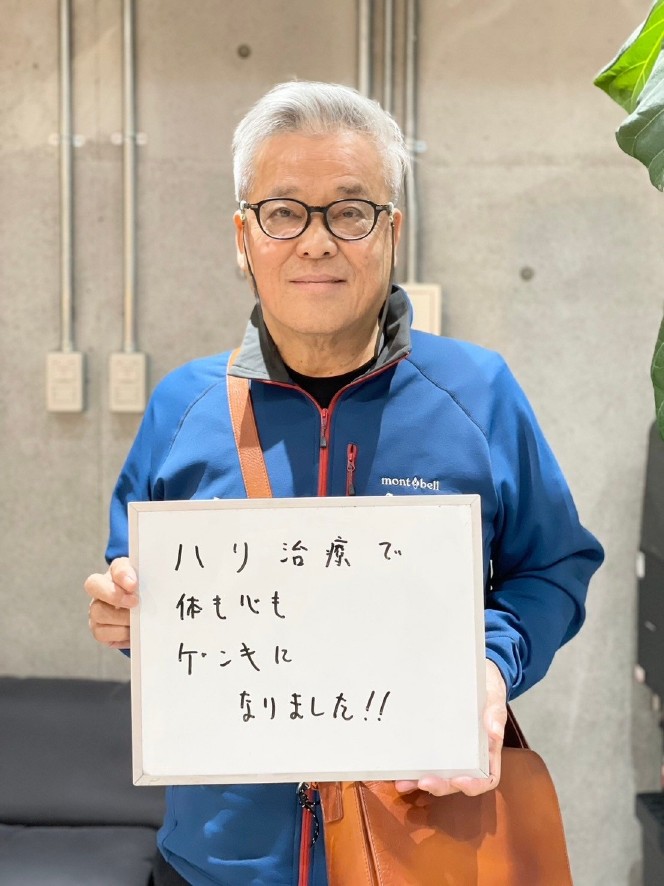 mont bell
ハリ治療で
体も心も
ゲンキに
なりました!!